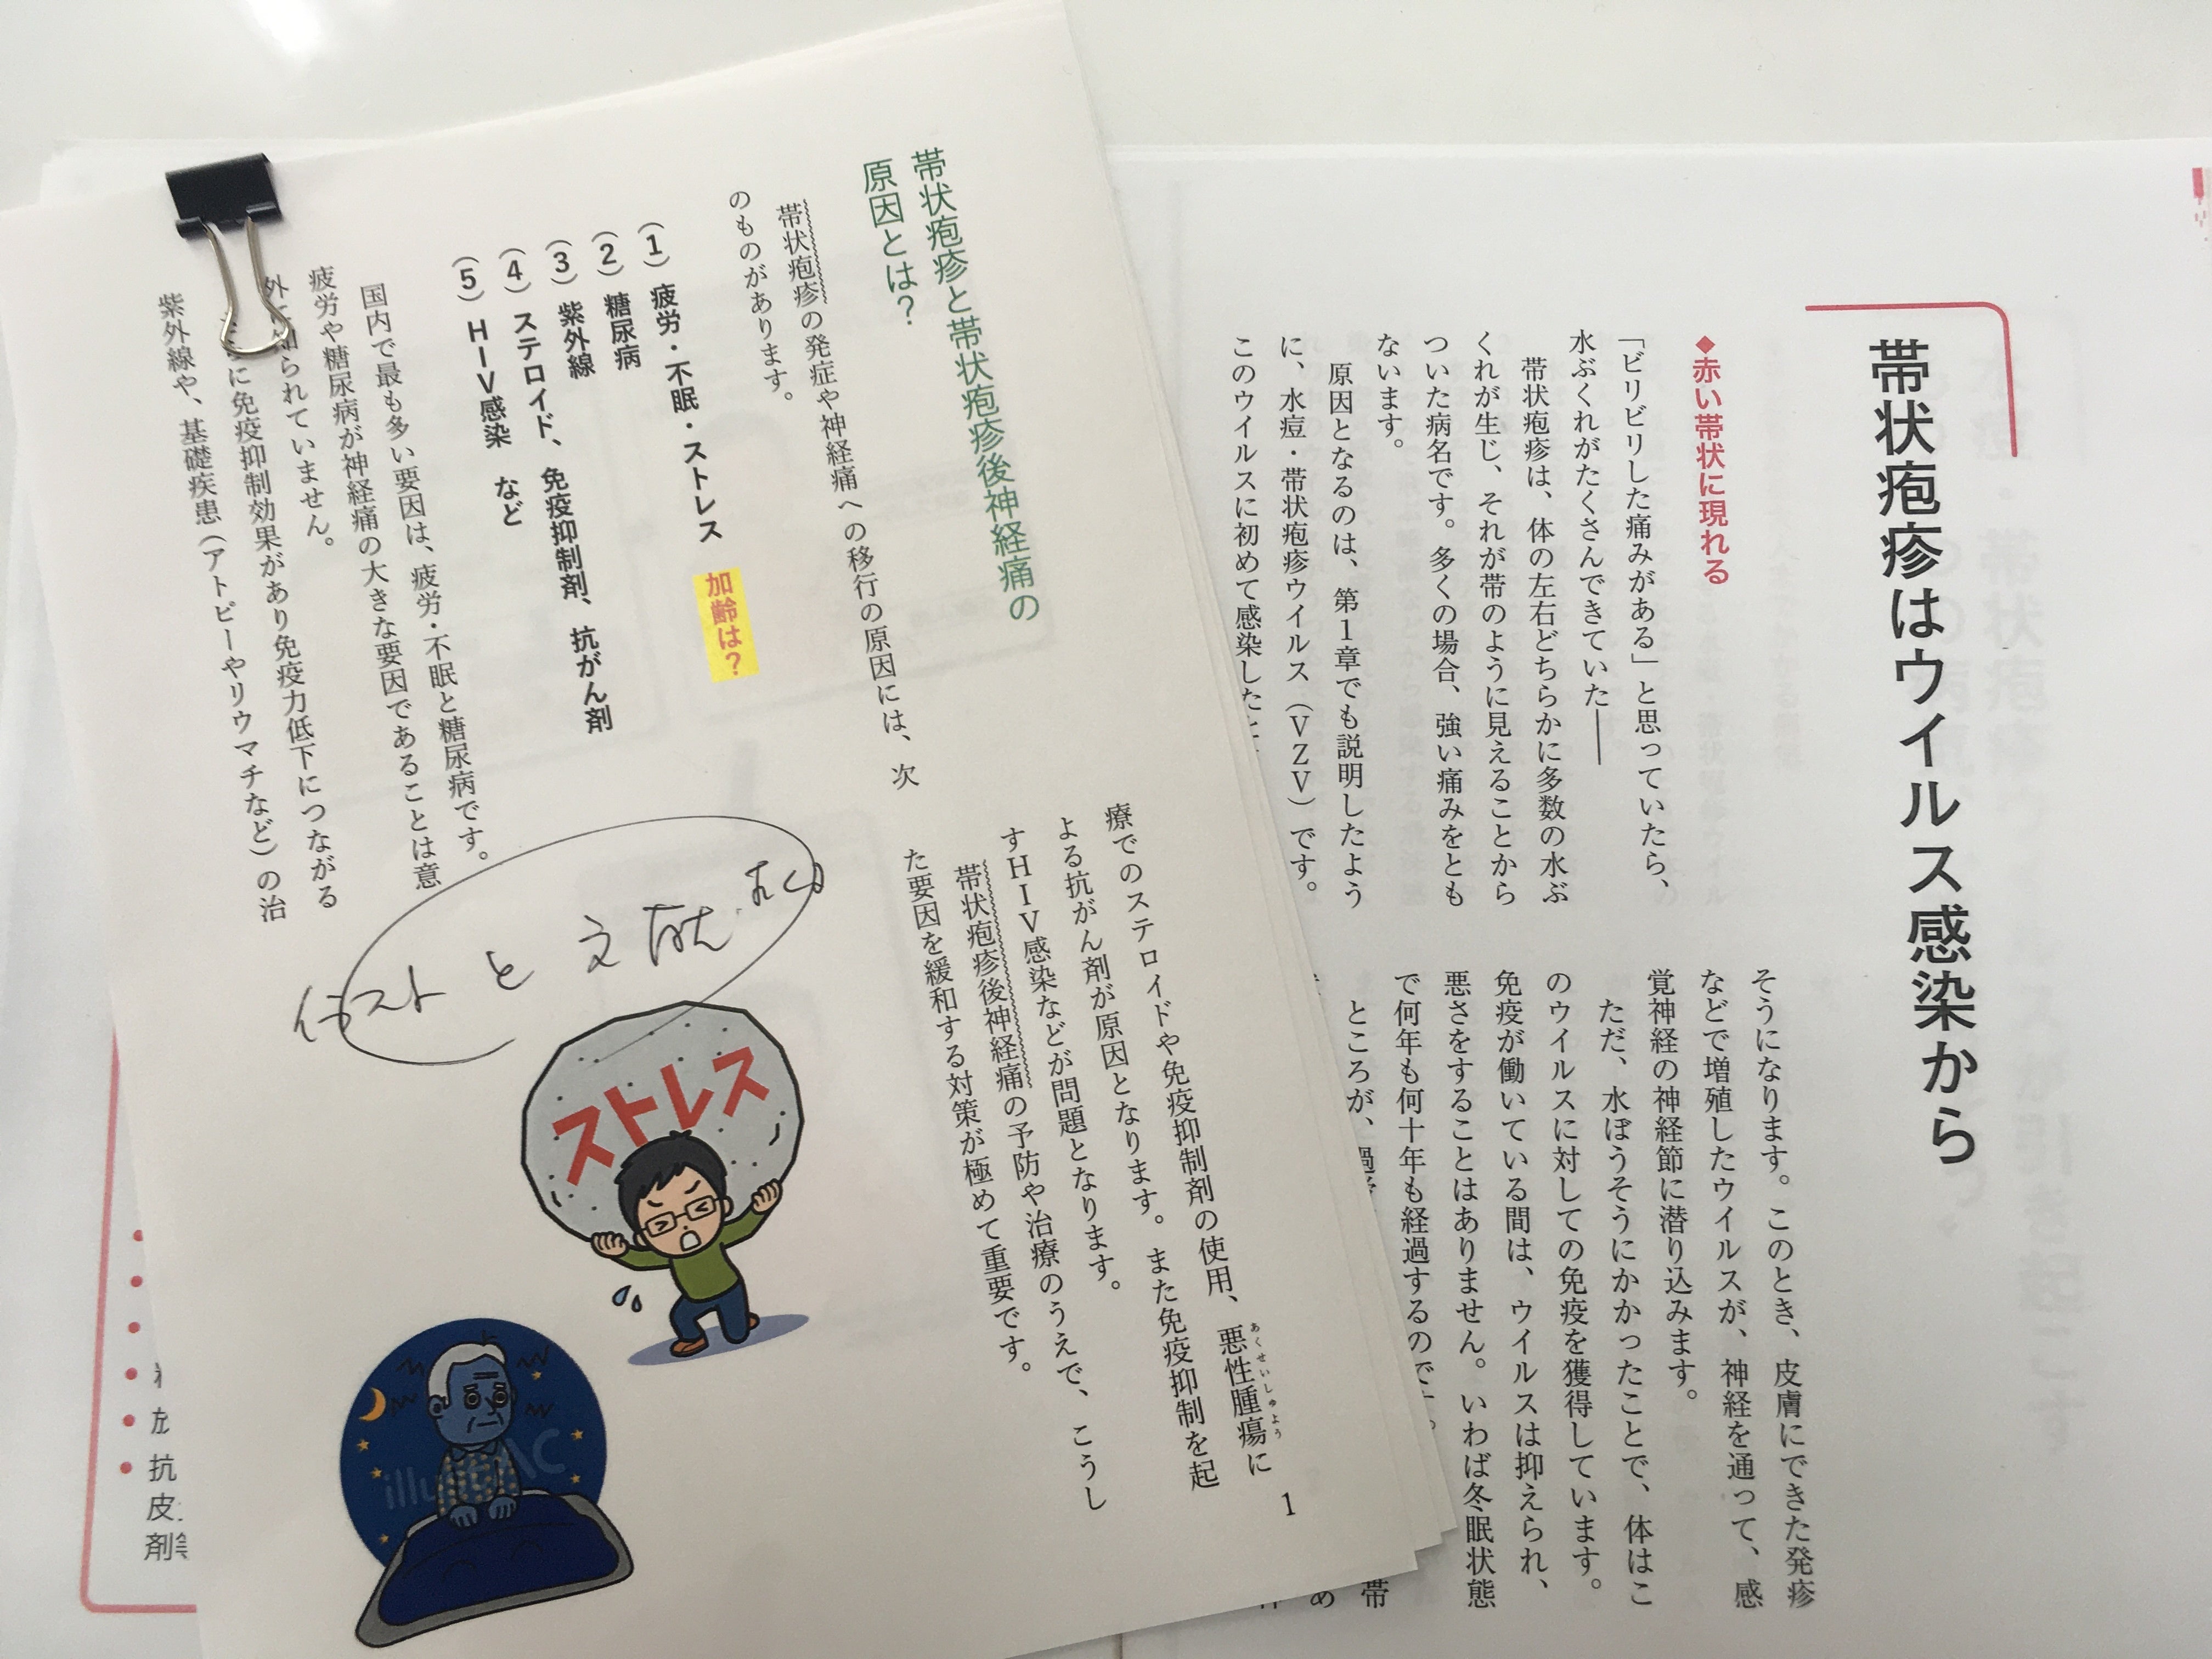 帯状疱疹はウイルス感染から
◆赤い帯状に現れる
「ビリビリした痛みがある」と思っていたら、
水ぶくれがたくさんできていた――
帯状疱疹は、体の左右どちらかに多数の水ぶ
くれが生じ、それが帯のように見えることから
ついた病名です。多くの場合、強い痛みをとも
ないます。
原因となるのは、第1章でも説明したよう
に、水痘・帯状疱疹ウイルス（VZV）です。
このウイルスに初めて感染した
そうになります。このとき、皮膚にできた発疹
などで増殖したウイルスが、神経を通って、感
覚神経の神経節に潜り込みます。
ただ、水ぼうそうにかかったことで、体はこ
のウイルスに対しての免疫を獲得しています。
免疫が働いている間は、ウイルスは抑えられ、
悪さをすることはありません。いわば冬眠状態
で何年も何十年も経過するので
ところが、
帯
め
帯状疱疹と帯状疱疹後神経痛の
原因とは？
帯状疱疹の発症や神経痛への移行の原因には、次
のものがあります。
（1）疲労・不眠・ストレス　加齢は？
（2）糖尿病
（3）紫外線
（4）ステロイド、免疫抑制剤、抗がん剤
（5）HIV感染　など
国内で最も多い要因は、疲労・不眠と糖尿病です。
疲労や糖尿病が神経痛の大きな要因であることは意
外に知られていません。
に免疫抑制効果があり免疫力低下につながる
紫外線や、基礎疾患（アトピーやリウマチなど）の治
療でのステロイドや免疫抑制剤の使用、悪性腫瘍に
あくせいしゅよう
よる抗がん剤が原因となります。また免疫抑制を起
すHIV感染などが問題となります。
帯状疱疹後神経痛の予防や治療のうえで、こうし
た要因を緩和する対策が極めて重要です。
イラストと文献
ストレス
1
抗
皮
剤